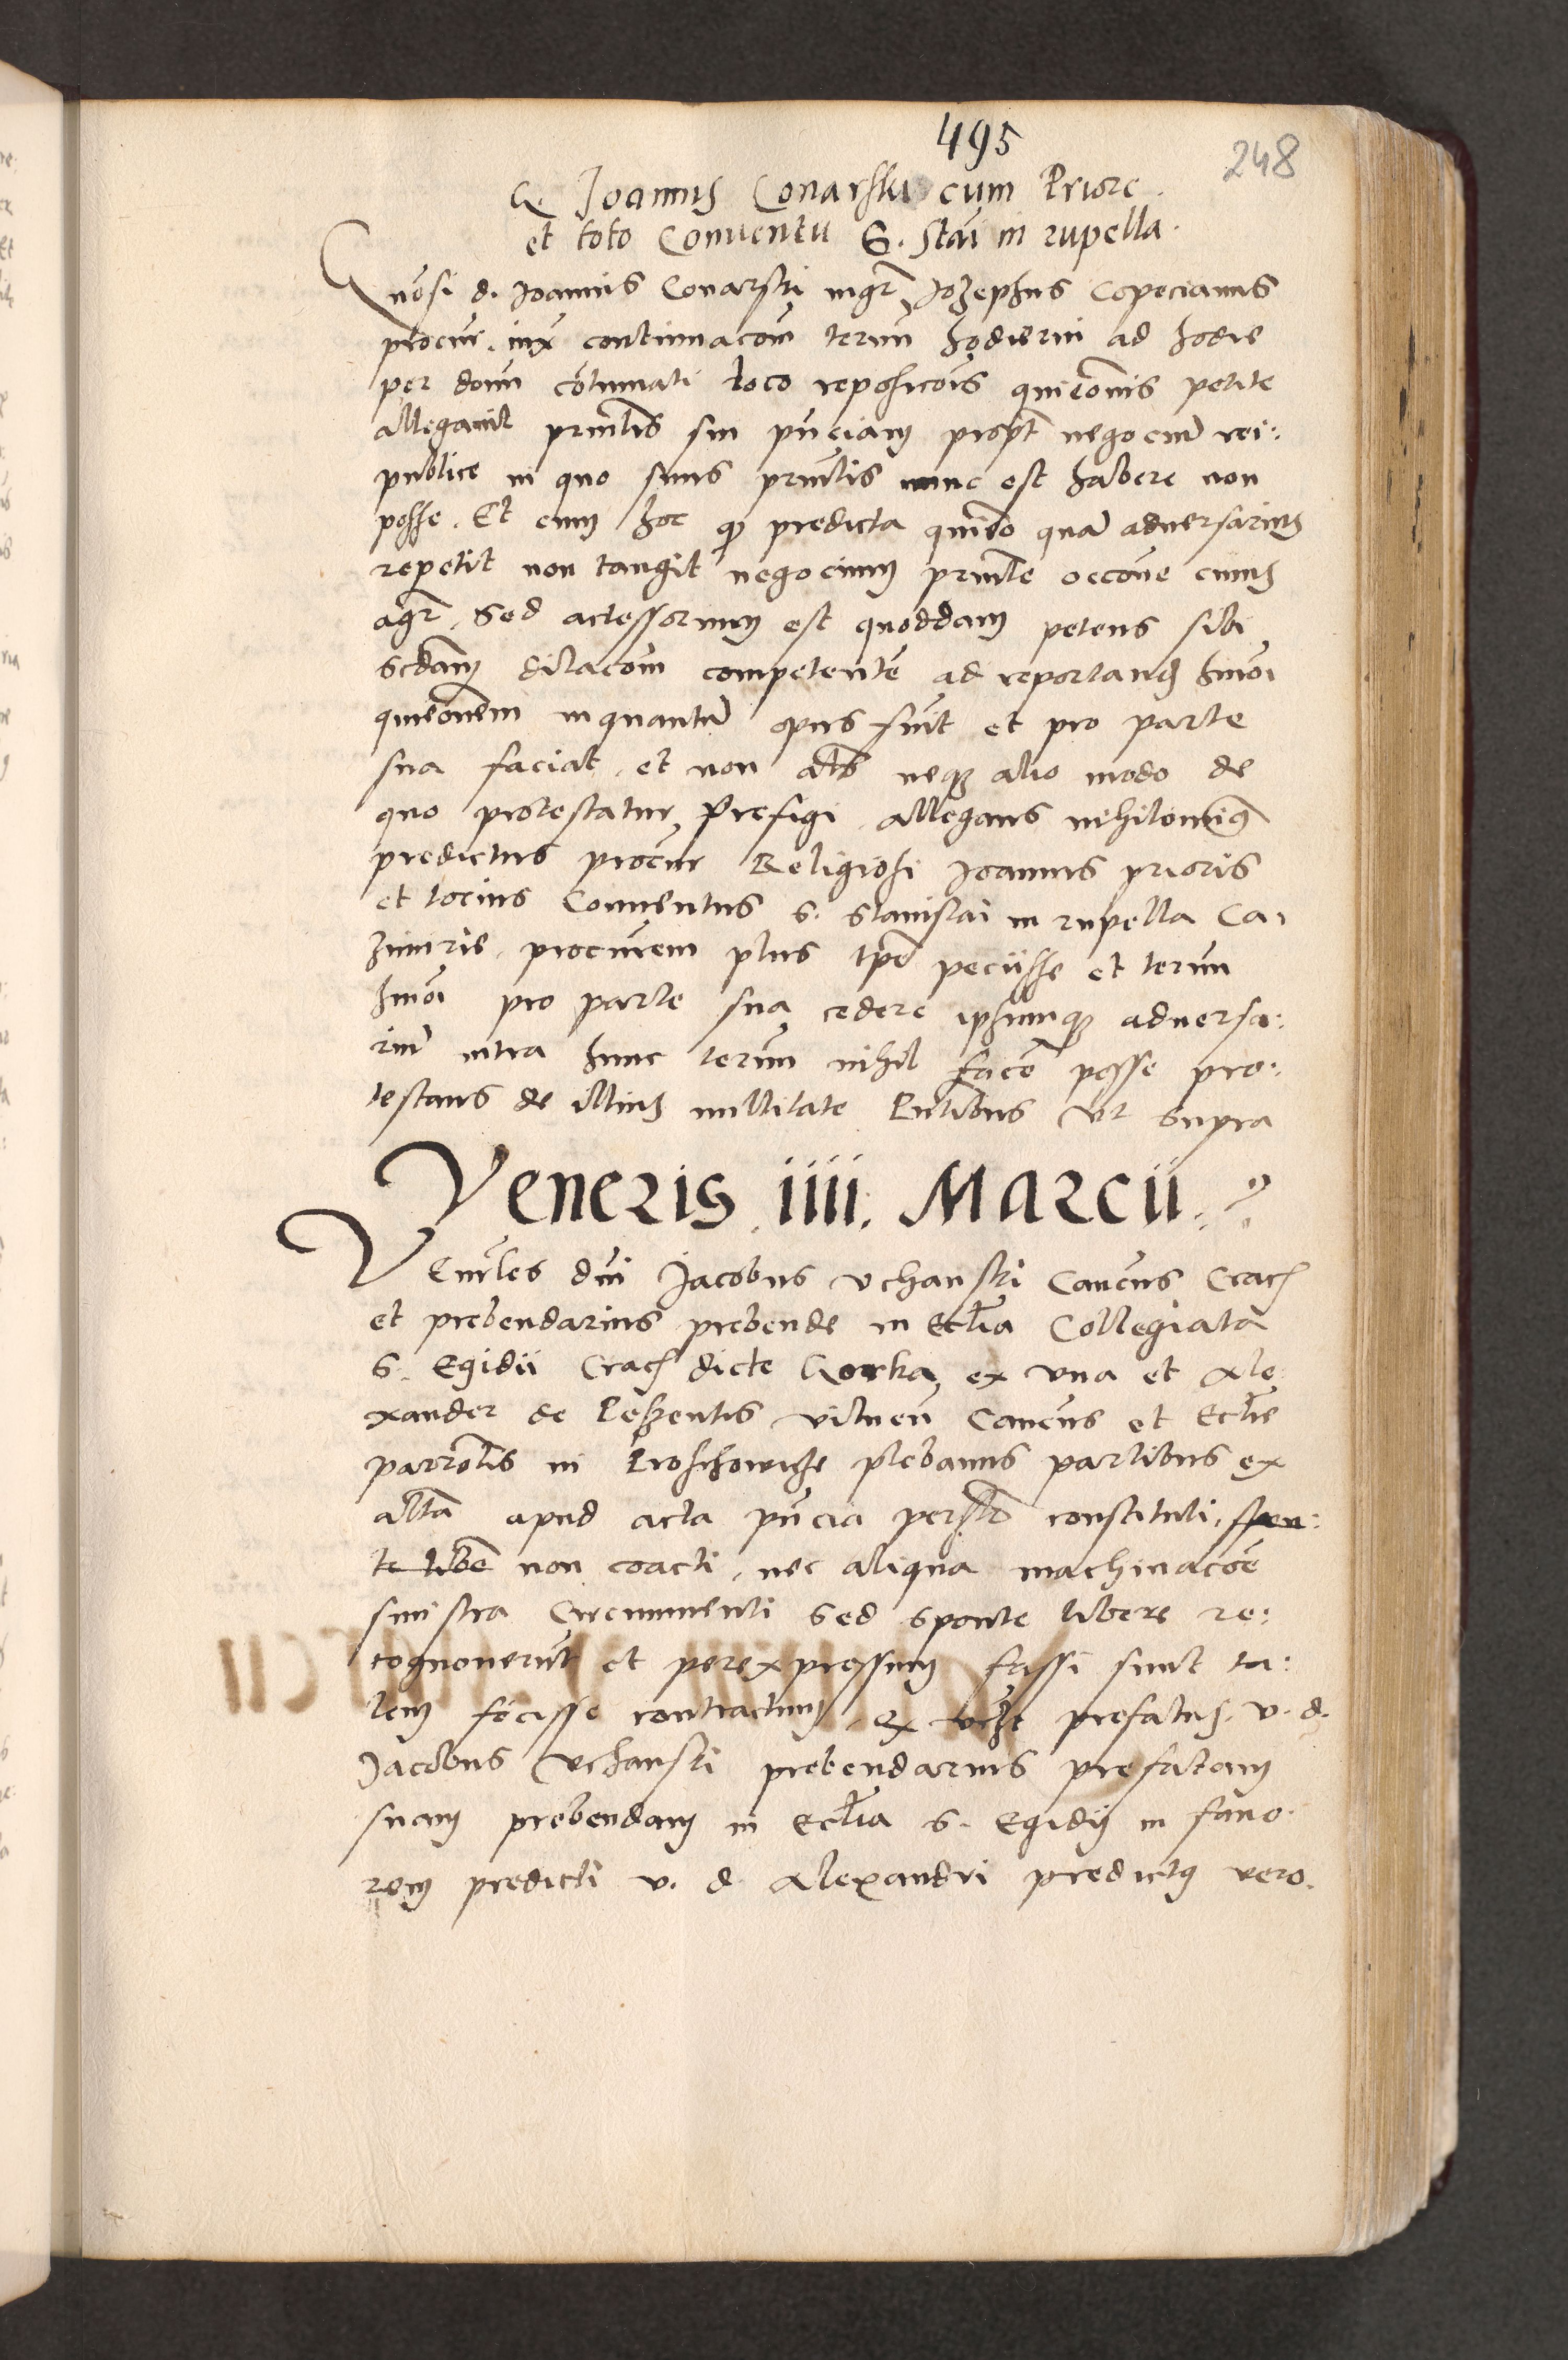 495
248
G. Joannis Conarski cum Priore
et toto Conventu S. Stai in rupella.
Gnosi d. Joannis Conarski mgr Jozephus Copecianus
procur. iux continuacom termi hodierni ad hodie
per dom cotinuati loco reposicois quieonis petite
allegavit prinlis sui punciam propt negocium rei:
publice in quo suus prinlis nunc est habere non
posse. Et cum hoc q predicta quieo qua adversarius
repetit non tangit negocium prinle occone cuius
agr, Sed accessorium est quoddam petens sibi
scdam dilacom competente ad reportand hmoi
quieonem inquantu opus fuit et pro parte
sua faciat, et non als neq alio modo de
quo protestatur Prefigi. Allegans nihilominus
predictus procur Religiosi Joannis prioris
et tocius Conventus S. Stanislai in rupella Ca,
zimirie. procurem plus tpe peciisse et termi
hmoi pro parte sua cedere ipsumq adversa:
riu intra hunc termi nihil face posse pro:
testans de illius nullitate Pntibus Ut supra
Veneris .iiii. Marcii.
Venrles dni Jacobus Uchanski Cancus Crac
et prebendarius prebende in Ecclia Collegiata
S. Egidii Crac dicte Gorka ex una et Ale
xander de Peszentis vilnen Cancus et Ecclie
parrolis in Proschowicze plebanus partibus ex
alta apud acta pncia persolr constituti, spon:
te libe non coacti, nec aliqua machinacoe
sinistra Circumventi Sed sponte libere re:
cognoverut et per expressum fassi sunt ta:
lem fecisse contractum, Ex vczt prefatus. v. d.
Jacobus Uchanski prebendarius prefatam
suam prebendam in Ecclia S. Egidij in favo.
rem predicti v. d. Alexandri predictus vero.